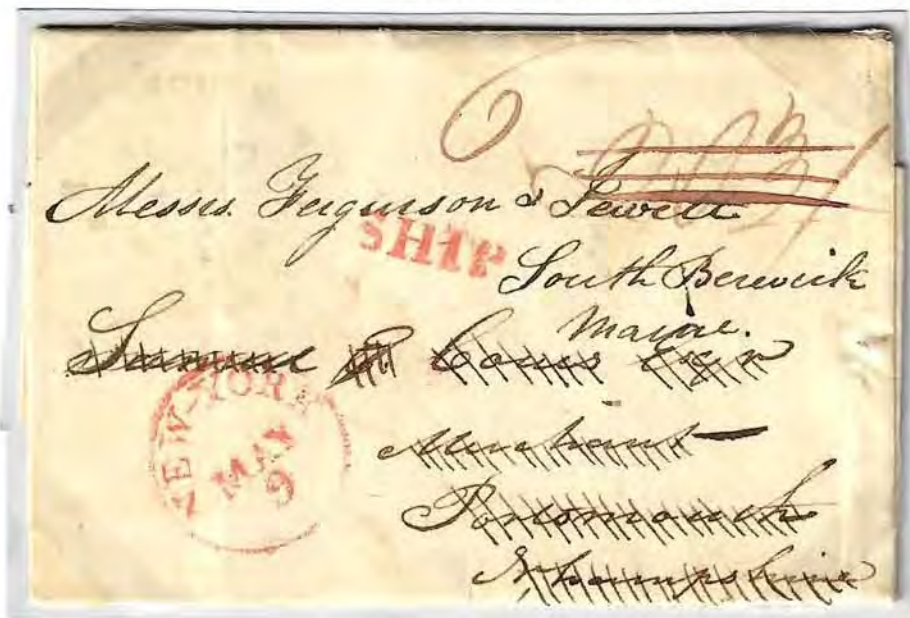 6
Messrs. Ferguson & Jewett
SHIP
South Berwick
Maine.
Samuel Coues Esqr
Merchant
Portsmouth
NHampshire
NEW-YORK
MAY
9